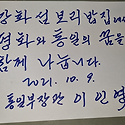 강화섬 보리밥집에서
평화와 통일의 꿈을
함께 나눕니다.
2021. 10. 9.
통일부장관 이인영